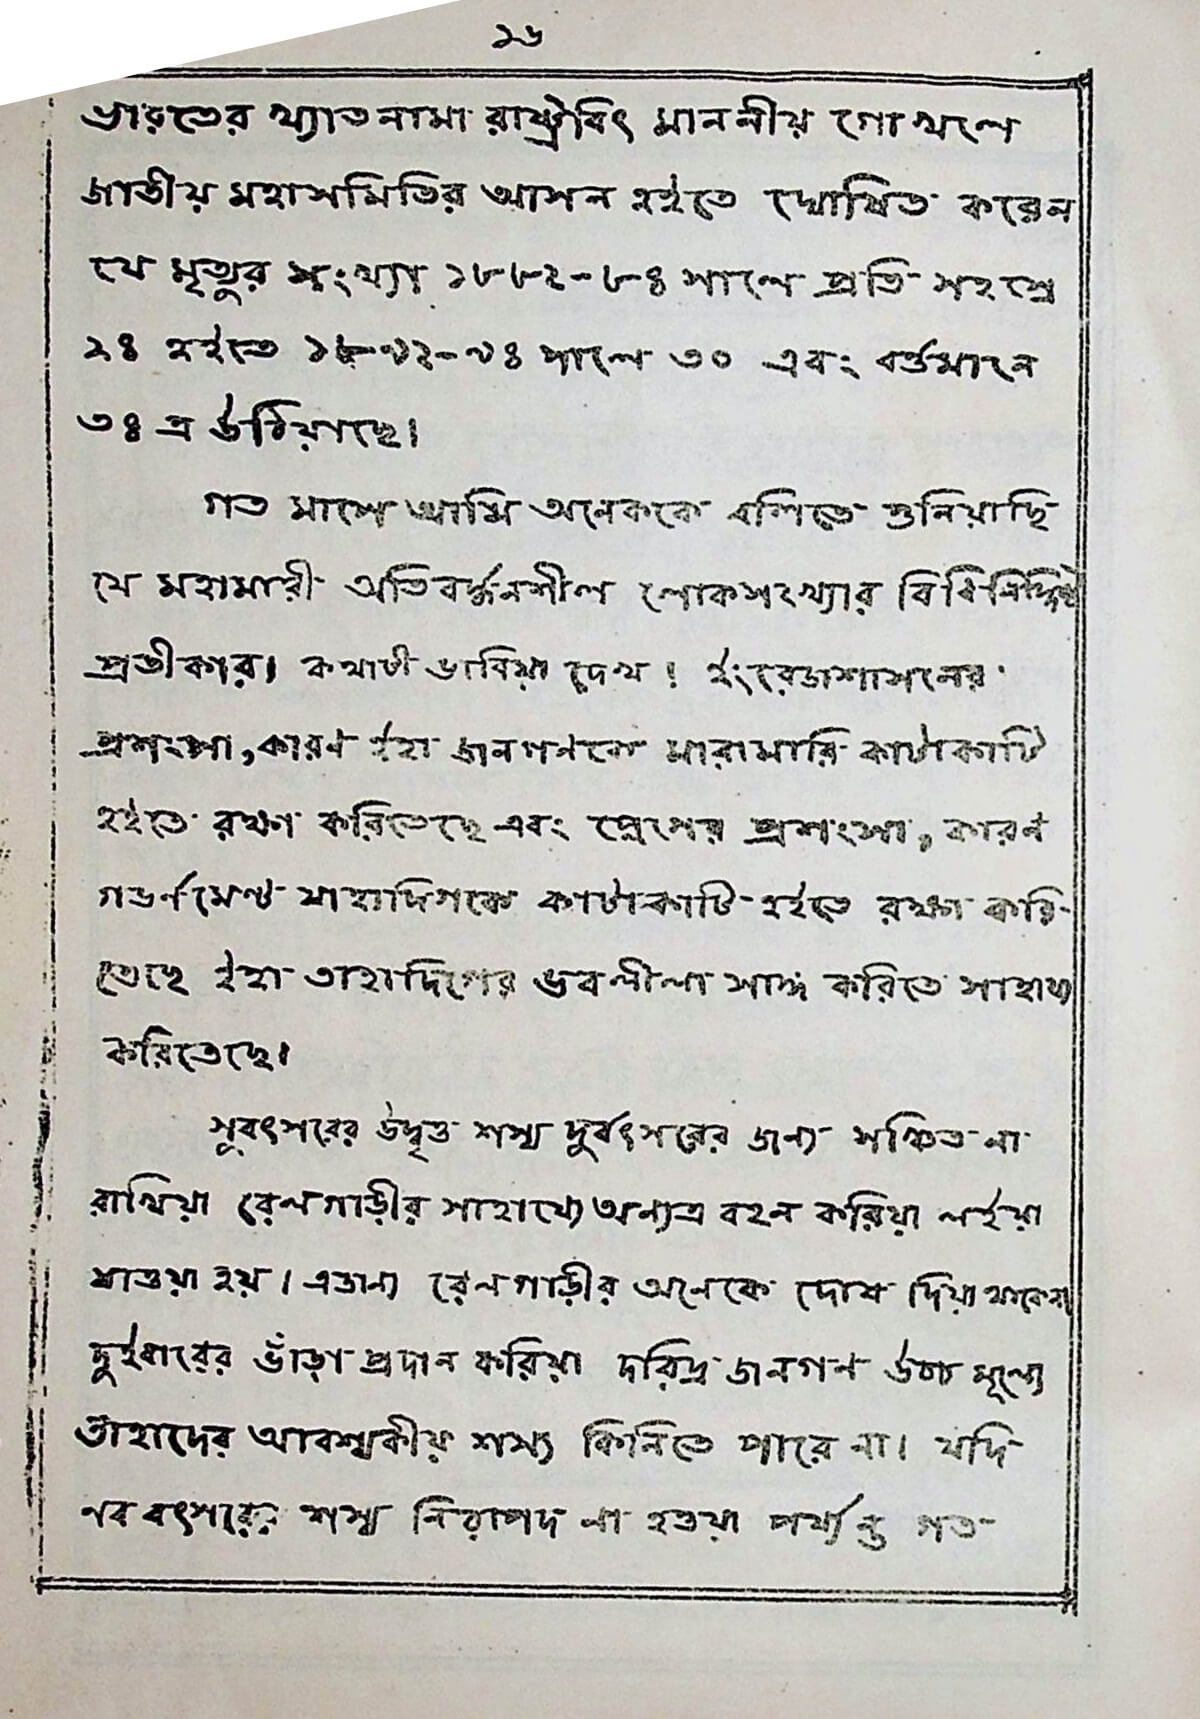 ১৬
ভারতের খ্যাতনামা রাষ্ট্রবিৎ মাননীয় গোখলে
জাতীয় মহাসমিতির আসন হইতে ঘোষিত করেন
যে মৃত্যুর সংখ্যা ১৮৮২-৮৪ সালে প্রতি সহস্রে
২৪ হইতে ১৮৯২-৯৪ সালে ৩০ এবং বর্ত্তমানে
৩৪ এ উঠিয়াছে।
গত মাসে আমি অনেককে বলিতে শুনিয়াছি
যে মহামারী অতিবর্দ্ধনশীল লোকসংখ্যার বিধিনির্দ্দিষ্ট
প্রতীকার। কথাটী ভাবিয়া দেখ! ইংরেজশাসনের
প্রশংসা, কারণ ইহা জনগনকে মারামারি কাটাকাটি
হইতে রক্ষা করিতেছে এবং প্লেগের প্রশংসা, কারণ
গভর্ণমেন্ট যাহাদিগকে কাটাকাটি হইতে রক্ষা করি-
তেছে ইহা তাহাদিগের ভবলীলা সাঙ্গ করিতে সাহায্য
করিতেছে।
সুবৎসরের উদ্বৃত্ত শস্য দুর্বৎসরের জন্য সঞ্চিত না
রাখিয়া রেলগাড়ীর সাহায্যে অন্যত্র বহন করিয়া লইয়া
যাওয়া হয়। এজন্য রেলগাড়ীর অনেকে দোষ দিয়া থাকেন।
দুইধারের ভাঁড়া প্রদান করিয়া দরিদ্র জনগণ উচ্চ মূল্যে
তাহাদের আবশ্যকীয় শস্য কিনিতে পারে না। যদি
নব বৎসরের শস্য নিরাপদ না হওয়া পর্য্যন্ত গত